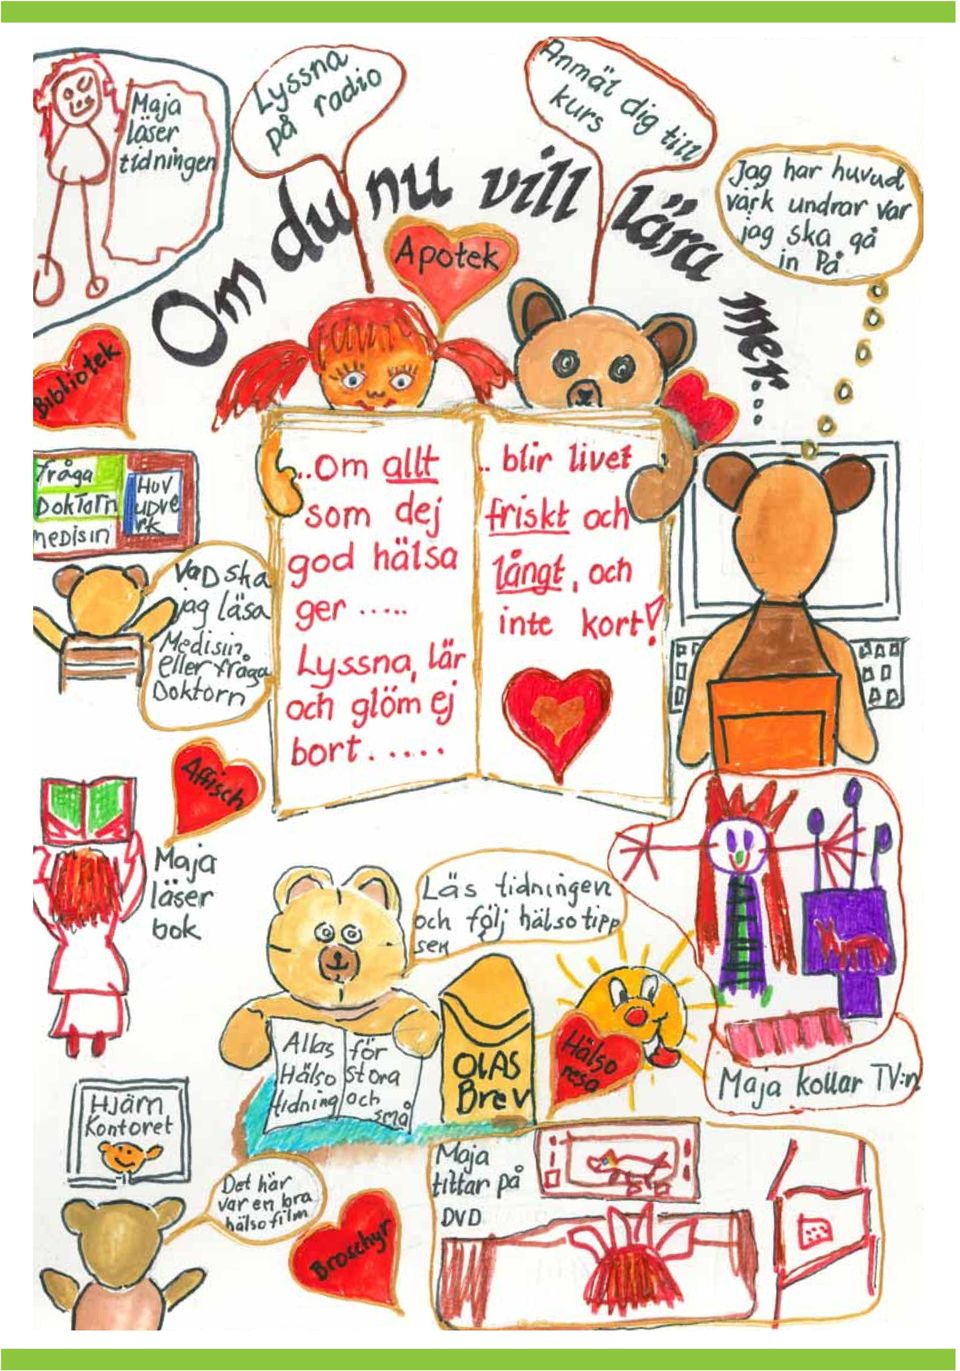 Maja
läser
tidningen
Lyssna
på radio
Anmäl dig till
kurs
Jag har huvud
värk undrar var
jag ska gå
in På
Om du nu vill lära mer...
Apotek
Bibliotek
fråga
DokTorn
MeDisin
HUV
UDVe
rk
VaD ska
jag läsa
Medisin
eller fråga
Doktorn
...Om allt
som dej
god hälsa
ger .....
Lyssna, lär
och glöm ej
bort.....
.. blir livet
friskt och
långt, och
inte kort!
Affisch
Maja
läser
bok
Läs tidningen
och följ hälsotipp
sen
Allas
Hälso
tidning
för
stora
och
små
OlAS
Brev
Hälso
resa
Maja kollar TV:n
HJärn
Kontoret
Det här
var en bra
hälsofilm
Broschyr
Maja
tittar på
DVD